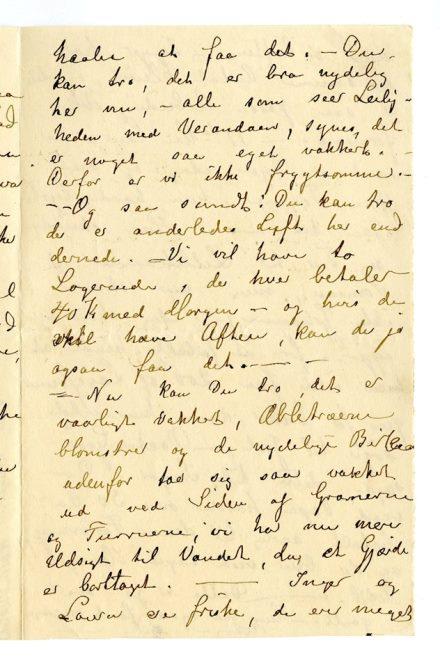 haaber at faa det. — Du
kan tro, det er bra nydelig
her nu, — alle som seer Leilig-
heden med Verandaen, synes, det
er noget saa eget vakkert. —
Derfor er vi ikke frygtsomme. —
— Og saa sundt! Du kan tro
der er anderledes Luft her end
dernede. — Vi vil have to
Logerende, der hver betaler
40 Kr med Morgen — og hvis de
vil have Aften, kan de jo
ogsaa faa det. — —
— Nu kan Du tro, det er
vaarligt vakkert, Æbletræerne
blomstrer og de nydelige
udenfor tae sig saa vakkert
ud ved Siden af Granerne
og Furruerne, vi ha nu mere
Udsigt til Vandet, da et Gjærde
er borttaget. — Inger og
Laura er friske, de ere meget